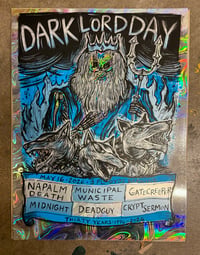 DARK LORD DAY
MAY 16, 2026
NAPALM DEATH
MUNICIPAL WASTE
GATECREEPER
MIDNIGHT
DEADGUY
CRYPT SERMON
THIRTY YEARS